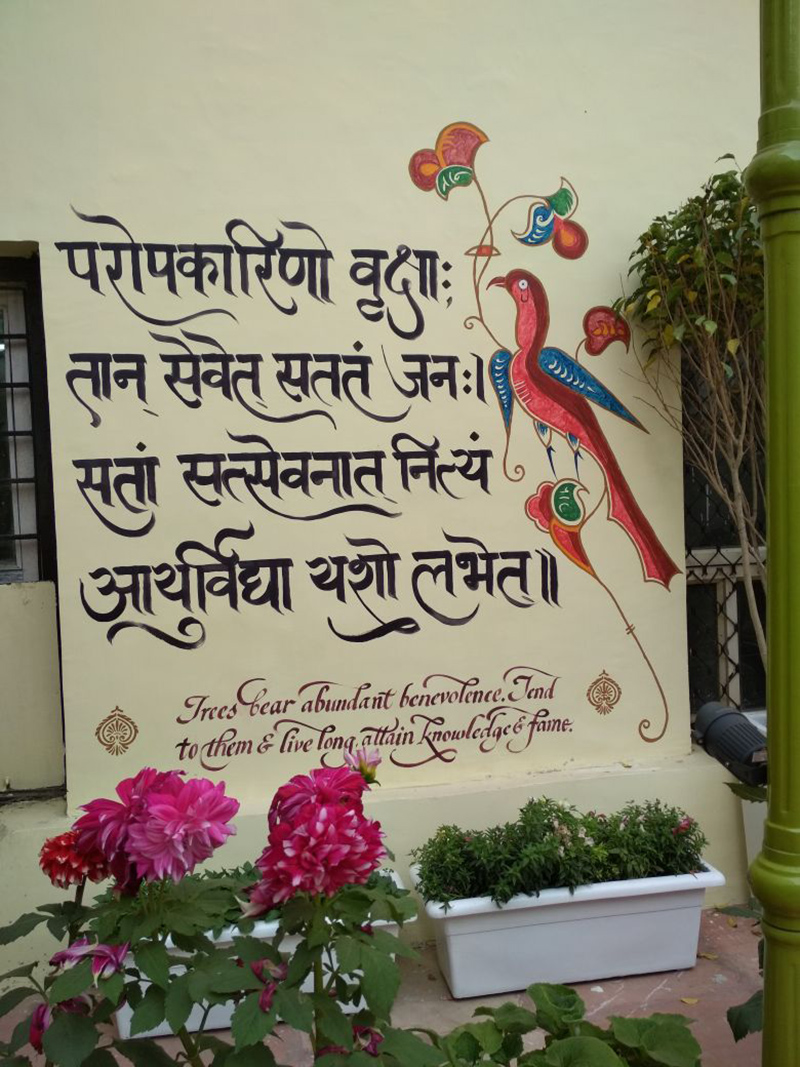 परोपकारिणो वृक्षाः
तान् सेवेत् सततं जनः।
सतां सत्सेवनात् नित्यं
आयुर्विद्या यशो लभेत्॥
Trees bear abundant benevolence. Tend
to them & live long, attain knowledge & fame.